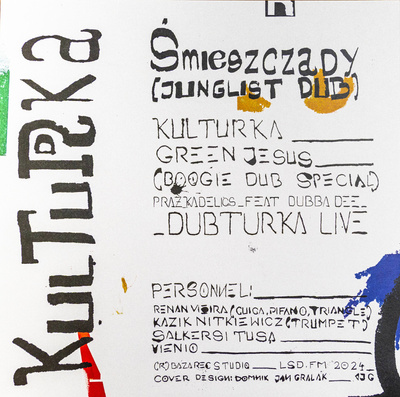 KulTuRKa
Śmieszczady
(JUNGLIST DUB)
KULTURKA
GREEN JESUS
(BOOGIE DUB SPECIAL)
PRAŻKADELICS_FEAT DUBBA DEE_
_DUBTURKA LIVE
PERSONNEL:
RENAN VIEIRA (CUICA, PIFANO, TRIANGLE)
KAZIK NITKIEWICZ (TRUMPET)
SALKERSI TUSA
VIENIO
(R) BAZAREC STUDIO LSD.FM 2024
COVER DESIGN: DOMINIK JAN GRALAK